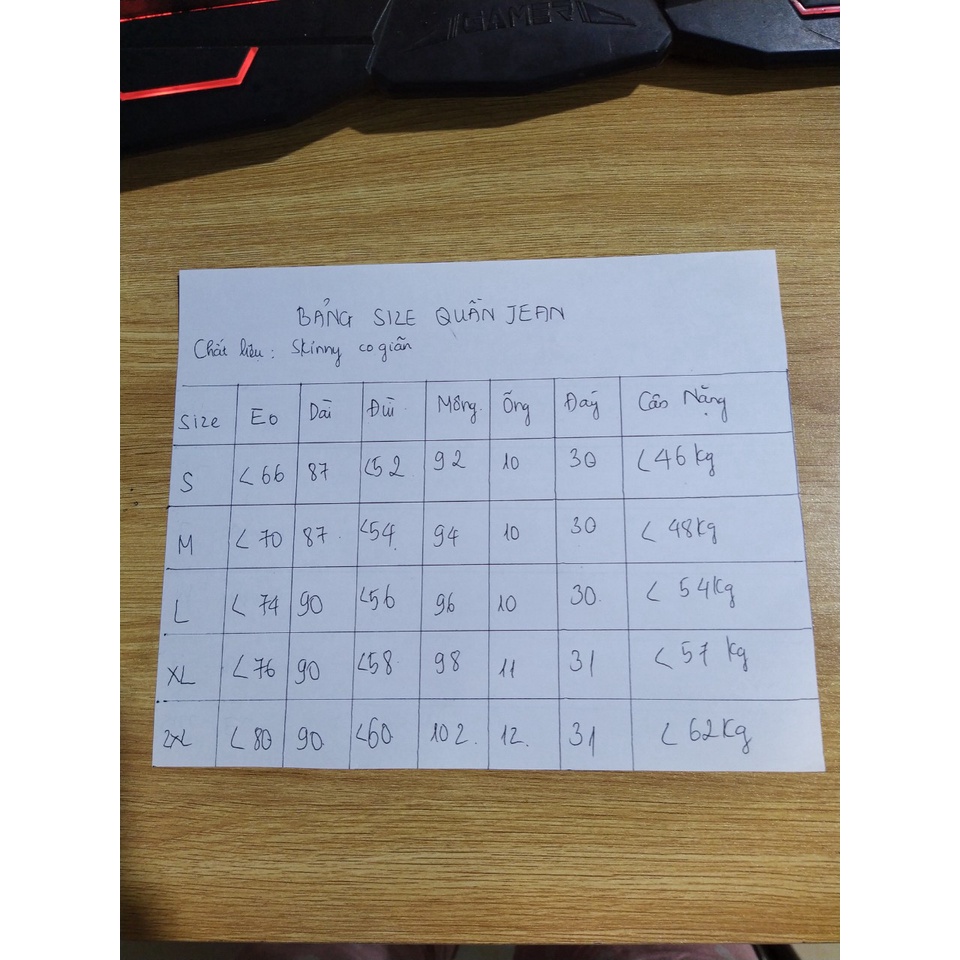 GAMER
BẢNG SIZE QUẦN JEAN
Chất liệu : Skinny co giãn
Size Eo Dài Đùi Mông Ống Đáy Cân Nặng
S <66 87 <52 92 10 30 <46 kg
M <70 87 <54 94 10 30 <48kg
L <74 90 <56 96 10 30 <54kg
XL <76 90 <58 98 11 31 <57 kg
2XL <80 90 <60 102 12 31 <62kg